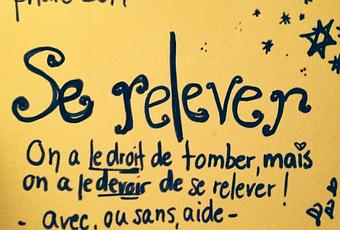 Se relever
On a le droit de tomber, mais
on a le devoir de se relever !
- avec, ou sans, aide -